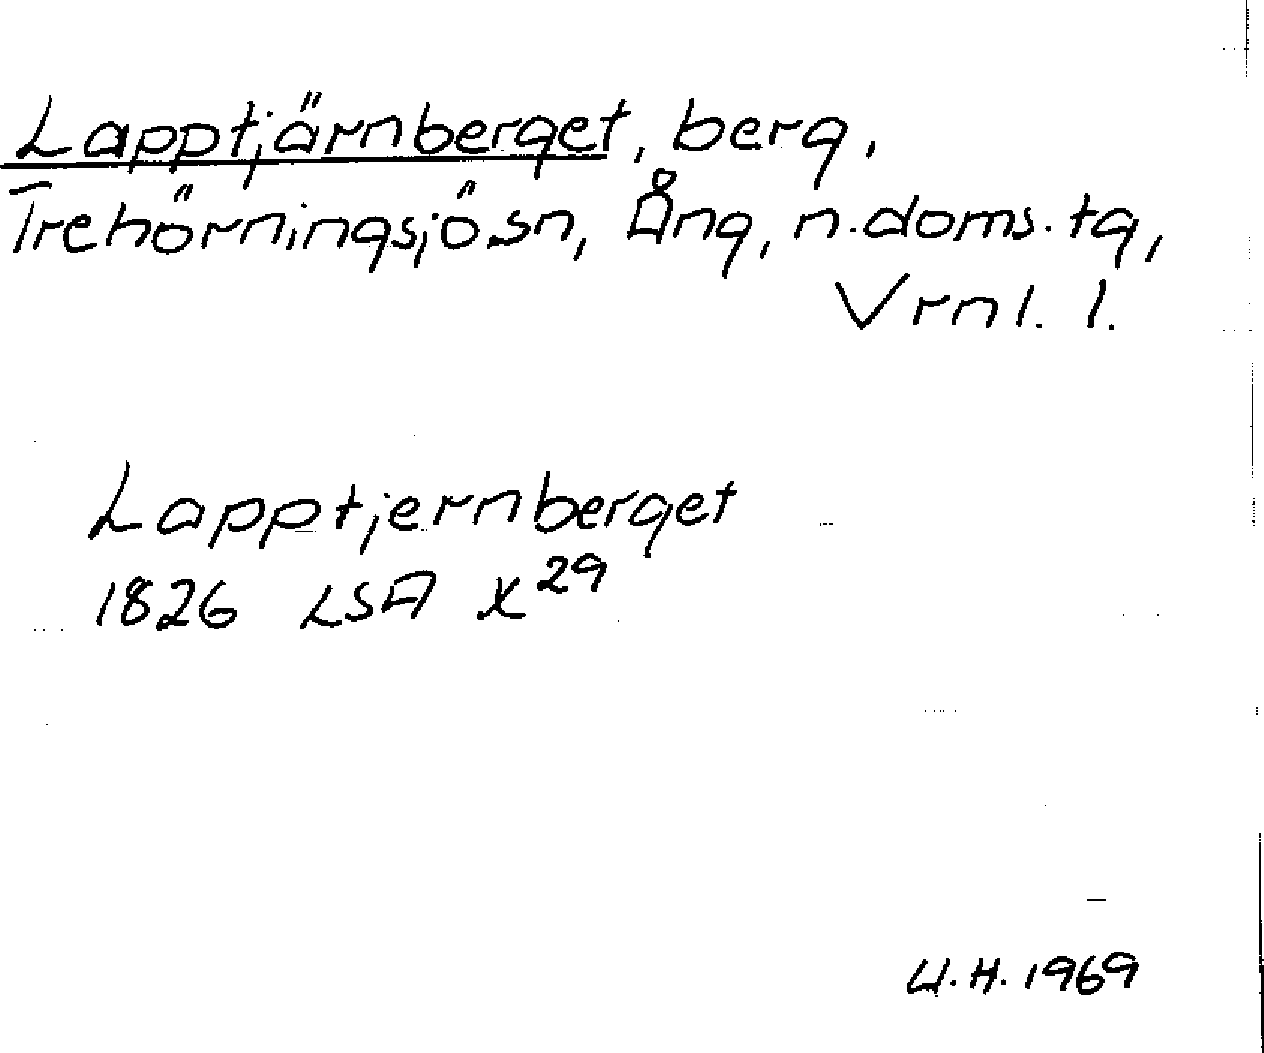 Lapptjärnberget, berg,
Trehörningsjö sn, Ång, n. doms. tg,
Vrnl. l.
Lapptjernberget
1826 LSA X29
U.H. 1969